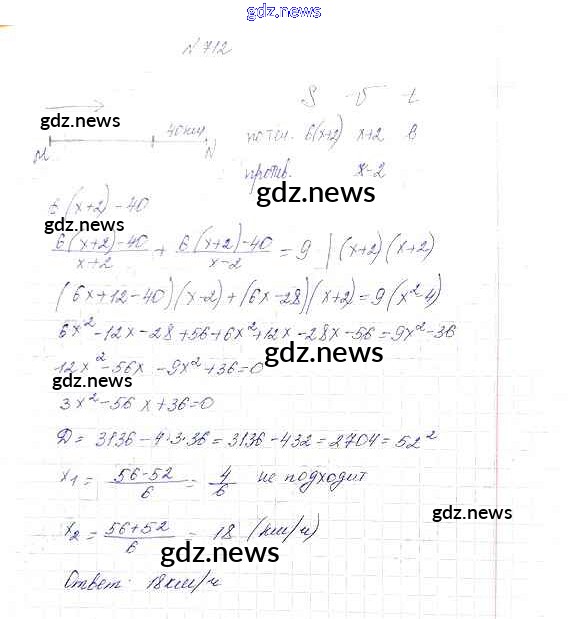 gdz.news
N 712
S V t
gdz.news
40 км
M N
по теч. 6(x+2) x+2 6
против. x-2
gdz.news
6(x+2)-40
gdz.news
6(x+2)-40/x+2 + 6(x+2)-40/x-2 = 9 | (x+2)(x+2)
(6x+12-40)(x-2)+(6x-28)(x+2)=9(x²-4)
6x²-12x-28+56+6x²+12x-28x-56=9x²-36
gdz.news
12x²-56x-9x²+36=0
gdz.news
3x²-56x+36=0
D = 3136-4·3·36=3136-432=2704=52²
x₁ = 56-52/6 = 4/6 не подходит
gdz.news
x₂ = 56+52/6 = 18 (км/ч)
gdz.news
Ответ: 18 км/ч
gdz.news